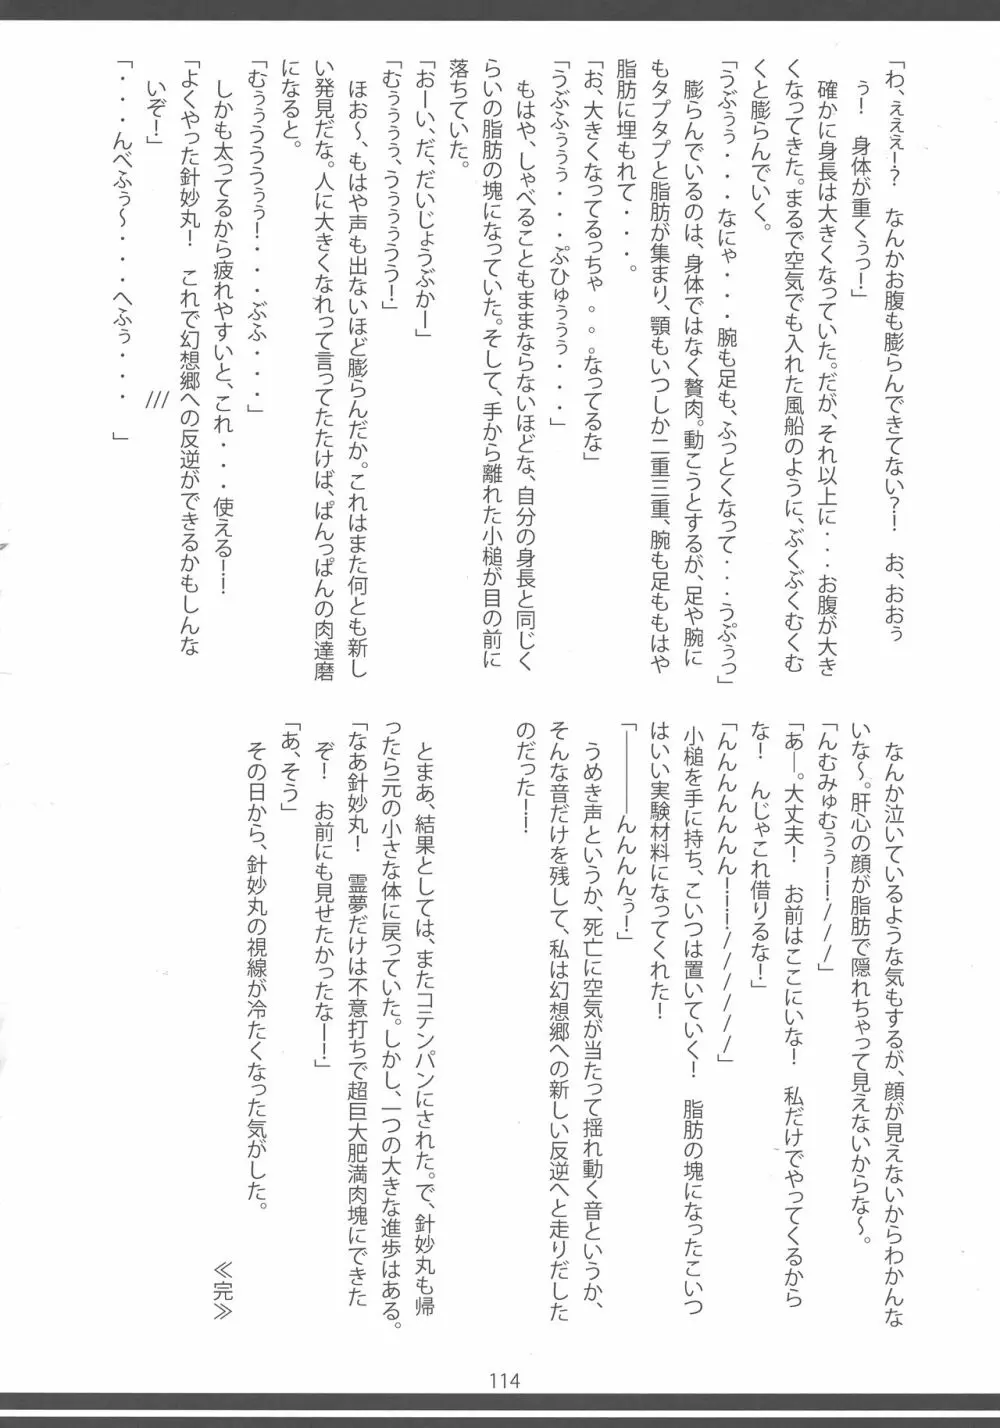 「わ、ぇえぇ!?　なんかお腹も膨らんできてない?!　お、おおぅ
ぅ!　身体が重くぅっ!」
確かに身長は大きくなっていた。だが、それ以上に・・・お腹が大き
くなってきた。まるで空気でも入れた風船のように、ぶくぶくむくむ
くと膨らんでいく。
「うぶぅぅ・・・なにゃ・・・腕も足も、ふっとくなって・・・うぷぅっ」
膨らんでいるのは、身体ではなく贅肉。動こうとするが、足や腕に
もタプタプと脂肪が集まり、顎もいつしか二重三重、腕も足ももはや
脂肪に埋もれて・・・。
「お、大きくなってるっちゃ。。。なってるな」
「うぶふぅぅぅ・・・ぷひゅぅぅぅ・・・」
もはや、しゃべることもままならないほどな、自分の身長と同じく
らいの脂肪の塊になっていた。そして、手から離れた小槌が目の前に
落ちていた。
「おーい、だ、だいじょうぶかー」
「むぅぅぅぅ、うぅぅぅうう!」
ほお～、もはや声も出ないほど膨らんだか。これはまた何とも新し
い発見だな。人に大きくなれって言ってたたけば、ぱんっぱんの肉達磨
になると。
「むぅぅうううぅぅ!・・・ぶふ・・・」
しかも太ってるから疲れやすいと、これ・・・使える!!
「よくやった針妙丸!　これで幻想郷への反逆ができるかもしんな
いぞ!」　///
「・・・んべふぅ～・・・へふぅ・・・　」
なんか泣いているような気もするが、顔が見えないからわかんな
いな～。肝心の顔が脂肪で隠れちゃって見えないからな～。
「んむみゅむぅぅ!!///」
「あー。大丈夫!　お前はここにいな!　私だけでやってくるから
な!　んじゃこれ借りるな!」
「んんんんんんん!!!//////」
小槌を手に持ち、こいつは置いていく!　脂肪の塊になったこいつ
はいい実験材料になってくれた!
「――――んんんんぅ!」
うめき声というか、死亡に空気が当たって揺れ動く音というか、
そんな音だけを残して、私は幻想郷への新しい反逆へと走りだした
のだった!!
とまあ、結果としては、またコテンパンにされた。で、針妙丸も帰
ったら元の小さな体に戻っていた。しかし、一つの大きな進歩はある。
「なあ針妙丸!　霊夢だけは不意打ちで超巨大肥満肉塊にできた
ぞ!　お前にも見せたかったなー!」
「あ、そう」
その日から、針妙丸の視線が冷たくなった気がした。
≪完≫
114